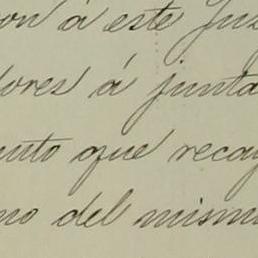 on á este Juz
dores á junta
uto que recay
no del mismo